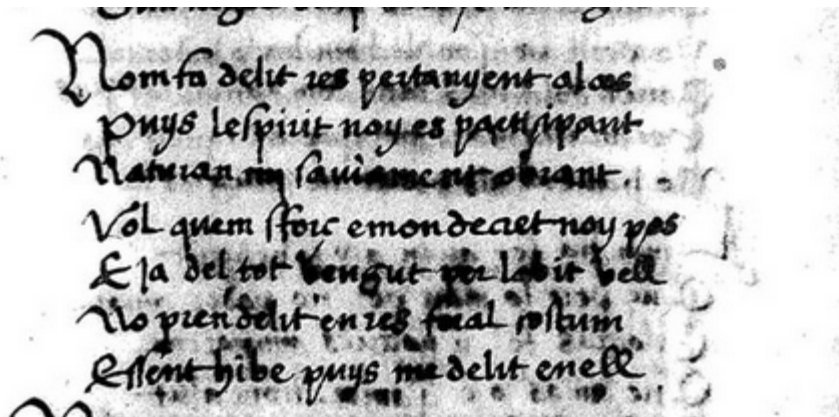 Nom fa delit res pertanyent al cos
Puys lespirit noy es participant
Naturan my saviament obrant
Vol quem sforc e mon decret noy pos
E ja del tot vengut per labit vell
No pren delit en res fora l costum
Essent hi be puys me delit en ell